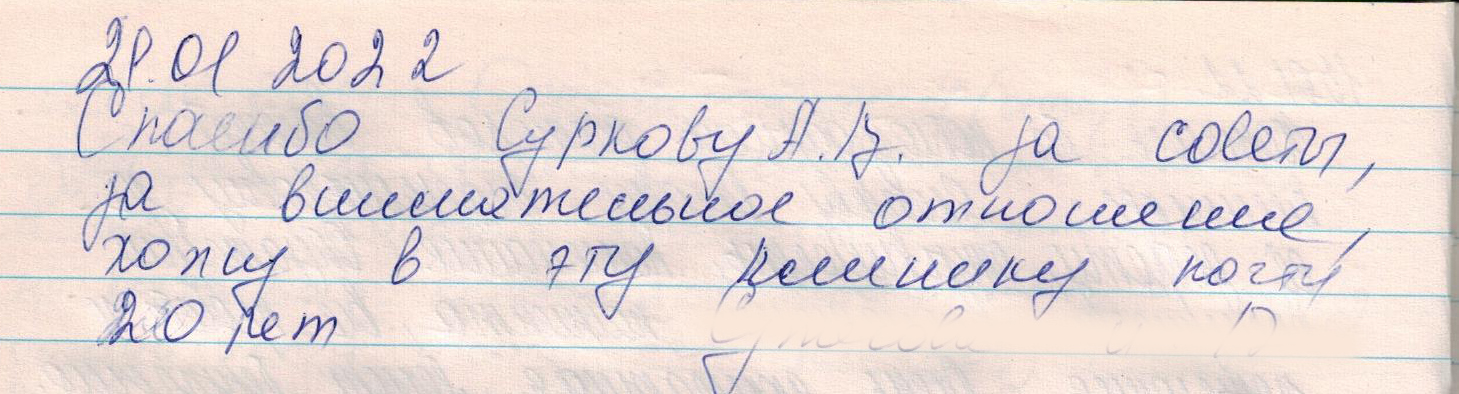 21.01 2022
Спасибо Суркову А.В. за советы,
за внимательное отношение,
хожу в эту клинику почти
20 лет